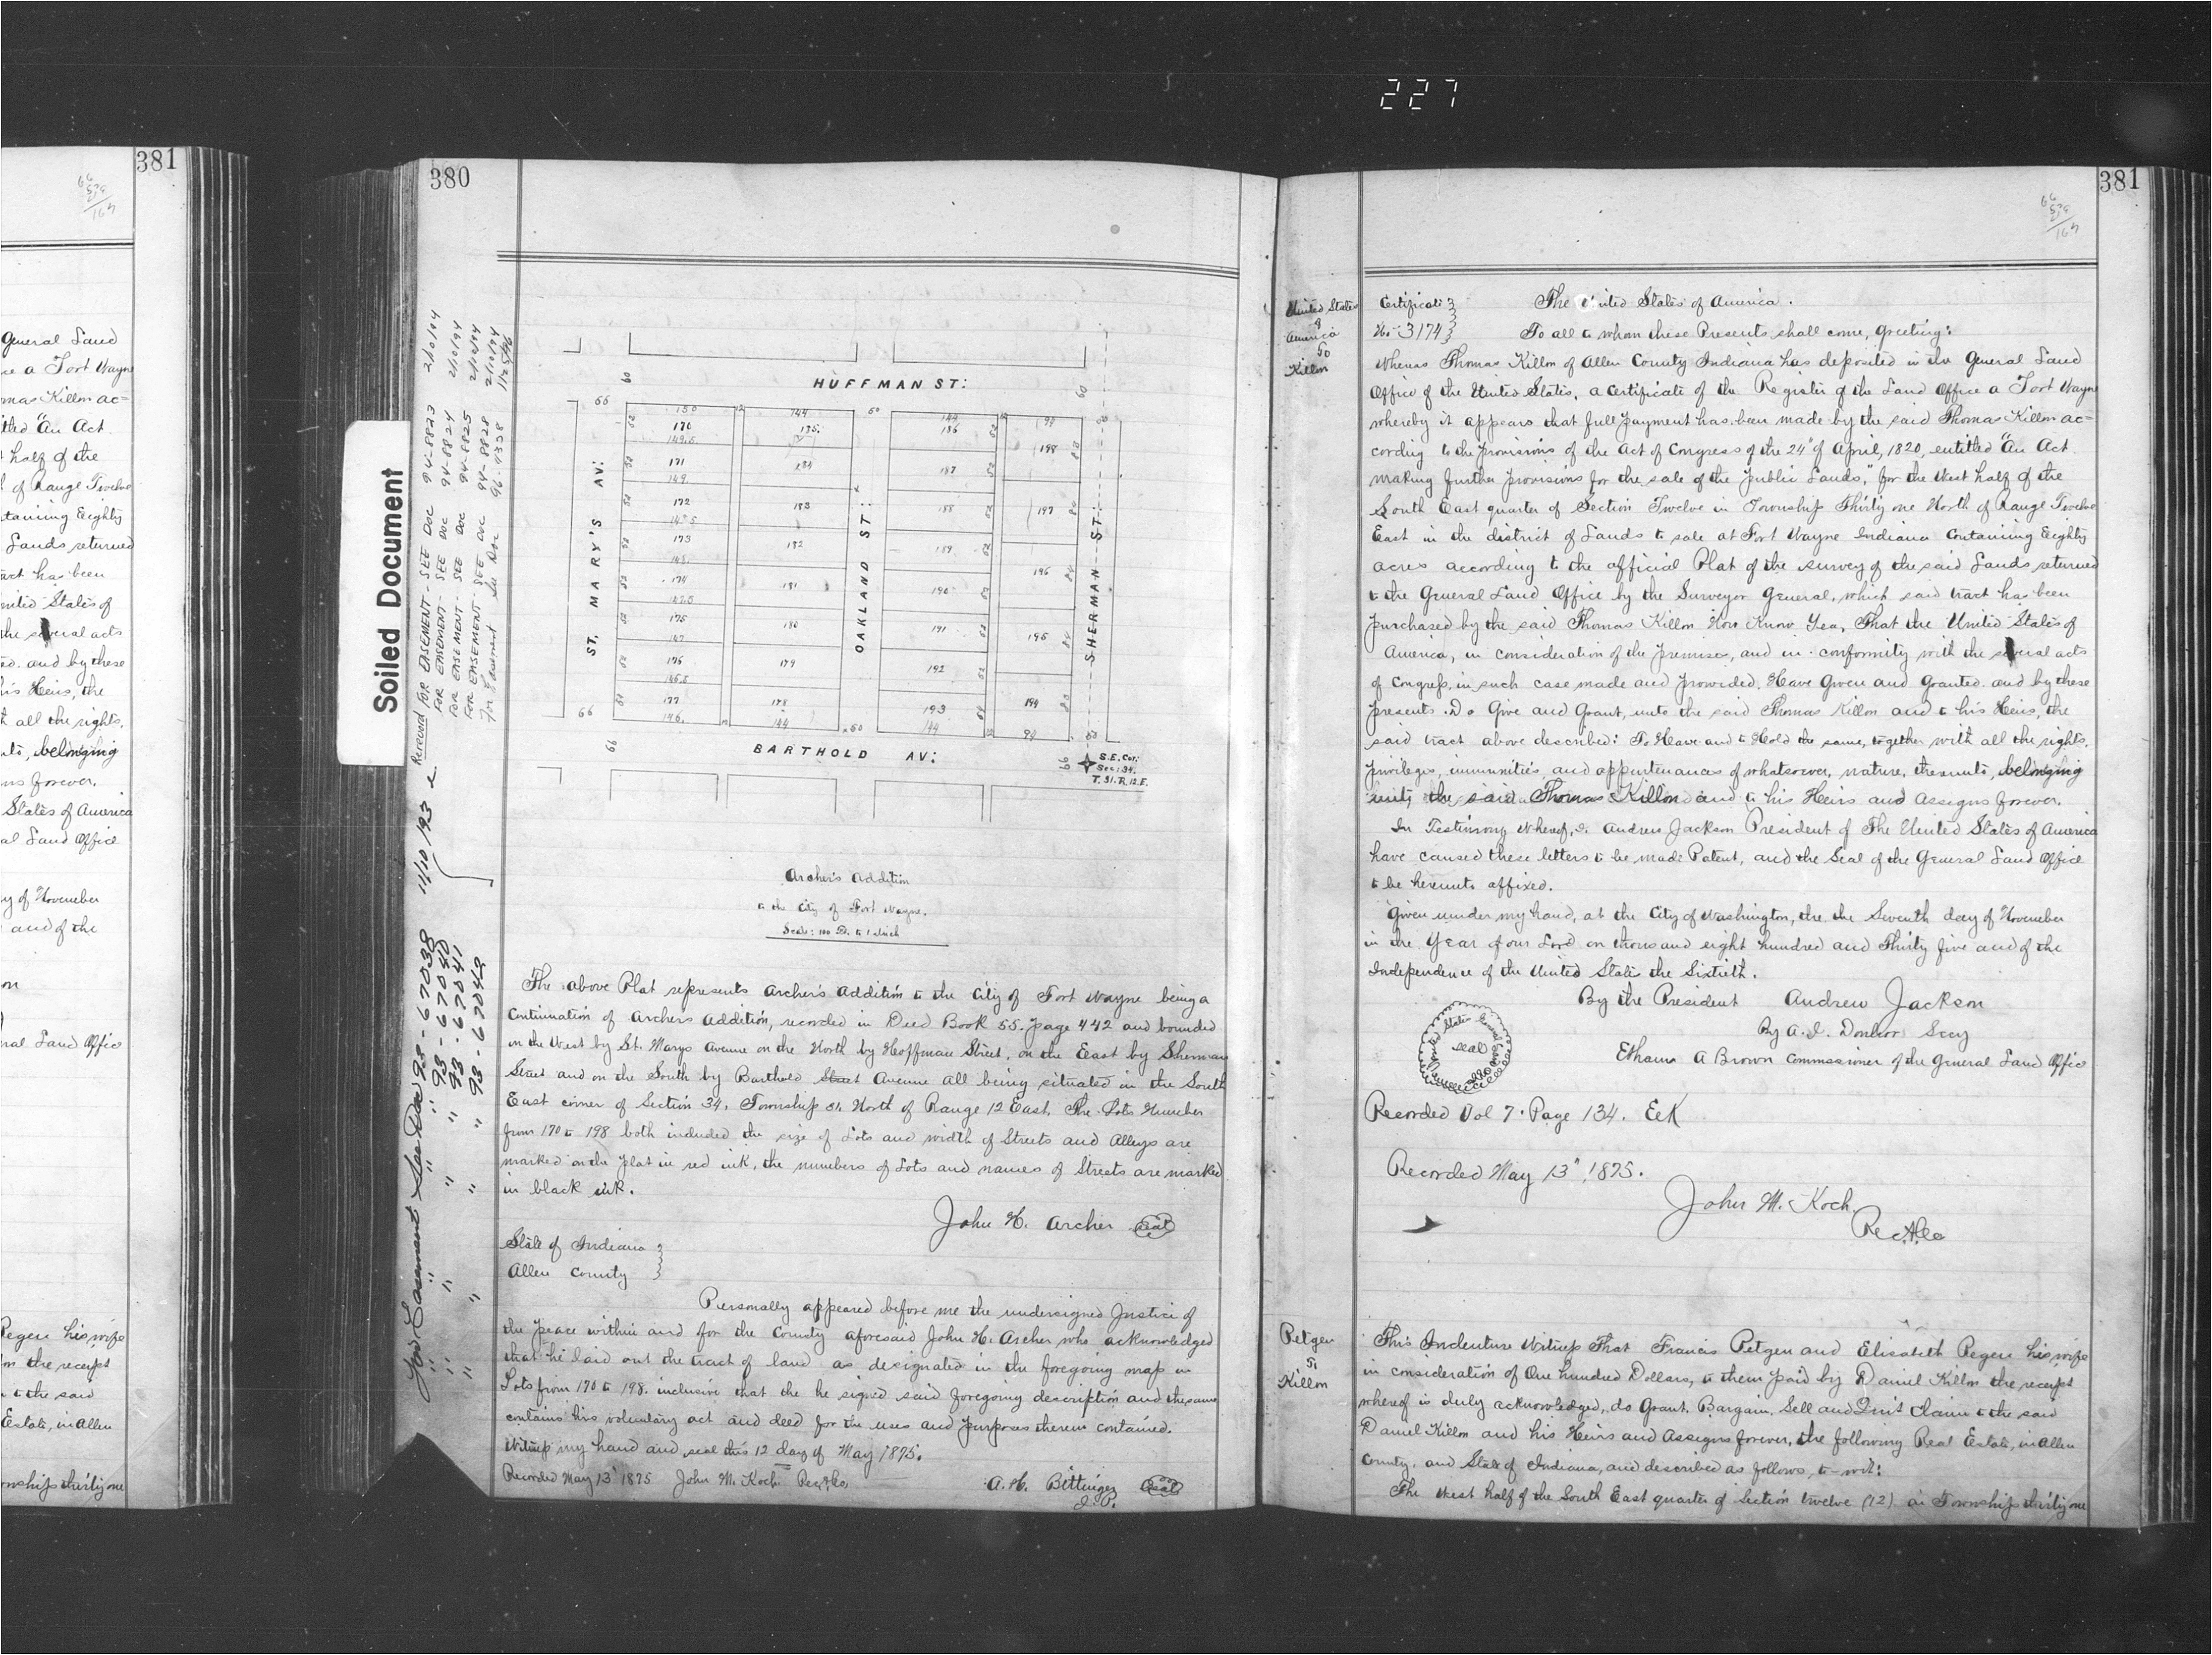 227
381
General Land
a Fort Wayne
mas Killon ac=
itled "An Act
half of the
of Range Twelve
taining Eighty
Lands returned
act has been
nited States of
the several acts
ed. and by these
his Heirs, the
all the rights,
belonging
ns forever.
States of America
al Land Office
y of November
and of the
ral Land Office
Pegen his wife
the receipt
to the said
Estate, in Allen
ownship thirty one
380
Soiled Document
Removed FOR EASEMENT - SEE DOC 94-8823 2/10/94
FOR EASEMENT - SEE DOC 94-8824 2/10/94
FOR EASEMENT - SEE DOC 94-8825 2/10/94
FOR EASEMENT - SEE DOC 94-8828 2/10/94
For Easement See Doc
11/10/93
For Easement See Doc 93-67038
" " " 93-67040
" " " 93-67041
" " " 93-67042
HUFFMAN ST:
ST. MARY'S AV:
OAKLAND ST:
SHERMAN ST:
BARTHOLD AV:
66
60
150
144
60
170
135
186
149.5
198
171
184
187
149.
172
183
188
197
173
182
189
148.
174
181
190
196
147.5
175
180
191
195
147
176
179
192
146.5
177
178
193
194
146.
144
144
66
S.E. Cor:
Sec: 34.
T. 31. R. 12. E.
Archer's Addition
to the City of Fort Wayne.
Scale: 100 Ft. to 1 Inch
The above Plat represents Archer's Addition to the City of Fort Wayne being a
Continuation of Archers Addition, recorded in Deed Book 55. page 442 and bounded
on the West by St. Marys Avenue on the North by Hoffman Street, on the East by Sherman
Street and on the South by Barthold Street Avenue all being situated in the South
East corner of Section 34. Township 31. North of Range 12 East. The Lots Number
from 170 to 198 both included the size of Lots and width of Streets and Alleys are
marked on the plat in red ink, the numbers of Lots and names of Streets are marked
in black ink.
John H. Archer Seal
State of Indiana
Allen County
Personally appeared before me the undersigned Justice of
the peace within and for the County aforesaid John H. Archer who acknowledged
that he laid out the tract of land as designated in the foregoing map in
Lots from 170 to 198. inclusive that the he signed said foregoing description and the same
contains his voluntary act and deed for the uses and purposes therein contained.
Witness my hand and seal this 12 day of May 1875.
Recorded May 13" 1875 John M. Koch Rec.
A. H. Bittinger Seal
J. P.
381
United States
of
America
To
Killon
Certificate
No. 3174
The United States of America.
To all to whom these Presents shall come, Greeting:
Whereas Thomas Killon of Allen County Indiana has deposited in the General Land
Office of the United States, a Certificate of the Register of the Land Office a Fort Wayne
whereby it appears that full payment has been made by the said Thomas Killon ac=
cording to the provisions of the Act of Congress of the 24" of April, 1820, entitled "An Act
making further provisions for the sale of the public Lands," for the West half of the
South East quarter of Section Twelve in Township Thirty one North of Range Twelve
East in the district of Lands to sale at Fort Wayne Indiana Containing Eighty
acres according to the official Plat of the survey of the said Lands returned
to the General Land Office by the Surveyor General, which said tract has been
purchased by the said Thomas Killon Now Know Yea, That the United States of
America, in consideration of the premises, and in conformity with the several acts
of Congress, in such case made and provided. Have Given and Granted. and by these
presents. Do Give and Grant, unto the said Thomas Killon and to his Heirs, the
said tract above described: To Have and to Hold the same, together with all the rights,
privileges, immunities and appurtenances of whatsoever, nature, thereunto, belonging
unto the said Thomas Killon and to his Heirs and Assigns forever.
In Testimony Whereof, I. Andrew Jackson President of The United States of America
have caused these letters to be made Patent, and the Seal of the General Land Office
to be hereunto affixed.
Given under my hand, at the City of Washington, the the Seventh day of November
in the Year of our Lord on thousand eight hundred and Thirty five and of the
Independence of the United State the Sixtieth.
By the President Andrew Jackson
By A. J. Donelson Secy
Ethan A Brown Commissioner of the General Land Office
seal
Recorded Vol 7. Page 134.
Recorded May 13" 1875.
John M. Koch.
Petgen
To
Killon
This Indenture Witness That Francis Petgen and Elisabeth Pegen his wife
in consideration of One hundred Dollars, to them paid by Daniel Killon the receipt
whereof is duly acknowledged, do Grant. Bargain. Sell and Quit Claim to the said
Daniel Killon and his Heirs and Assigns forever, the following Real Estate, in Allen
County, and State of Indiana, and described as follows, to-wit:
The West half of the South East quarter of Section twelve (12) in Township thirty one